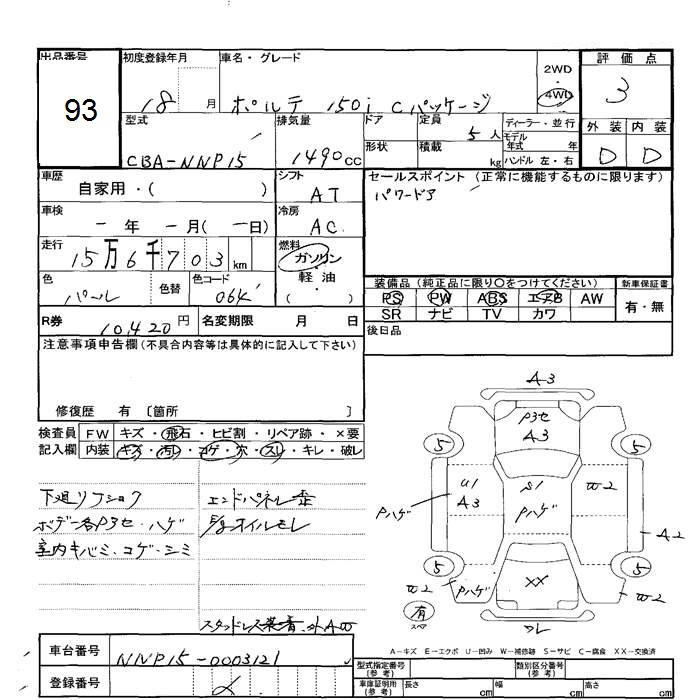 出品番号
93
初度登録年月
18 月
車名・グレード
ポルテ 150i Cパッケージ
2WD
・
4WD
評価点
3
型式
CBA-NNP15
排気量
1490cc
ドア
形状
定員
5人
積載
kg
ディーラー・並行
モデル
年式 年
ハンドル 左・右
外装 内装
D D
車歴
自家用・( )
シフト
AT
セールスポイント (正常に機能するものに限ります)
パワードア
車検
－年 －月(－日)
冷房
AC
走行
15万6千703km
燃料
ガソリン
・
軽油
・
( )
色
パール
色替
色コード
064
装備品(純正品に限り○をつけてください)
PS PW ABS エアB AW
SR ナビ TV カワ
新車保証書
有・無
R券
10,420円
名変期限 月 日
後日品
注意事項申告欄(不具合内容等は具体的に記入して下さい)
修復歴 有 〔箇所 〕
検査員
記入欄
FW キズ・飛石・ヒビ割・リペア跡・×要
内装 キズ・汚レ・コゲ・穴・スレ・キレ・破レ
下廻リフショク
ボデー各P3セ・ハゲ
室内キバミ、コゲ・シミ
エンドパネル歪
E/gオイルモレ
スタッドレス装着、外AW
A3
P3セ
A3
5
5
U1
A3
Pハゲ
S1
Pハゲ
W2
A2
5
5
W2
Pハゲ
XX
W2
有
スペア
ワレ
A－キズ E－エクボ U－凹み W－補修跡 S－サビ C－腐食 XX－交換済
車台番号
NNP15-0003121
登録番号
型式指定番号
(参考)
類別区分番号
(参考)
車庫証明用
(参考)
長さ cm 幅 cm 高さ cm